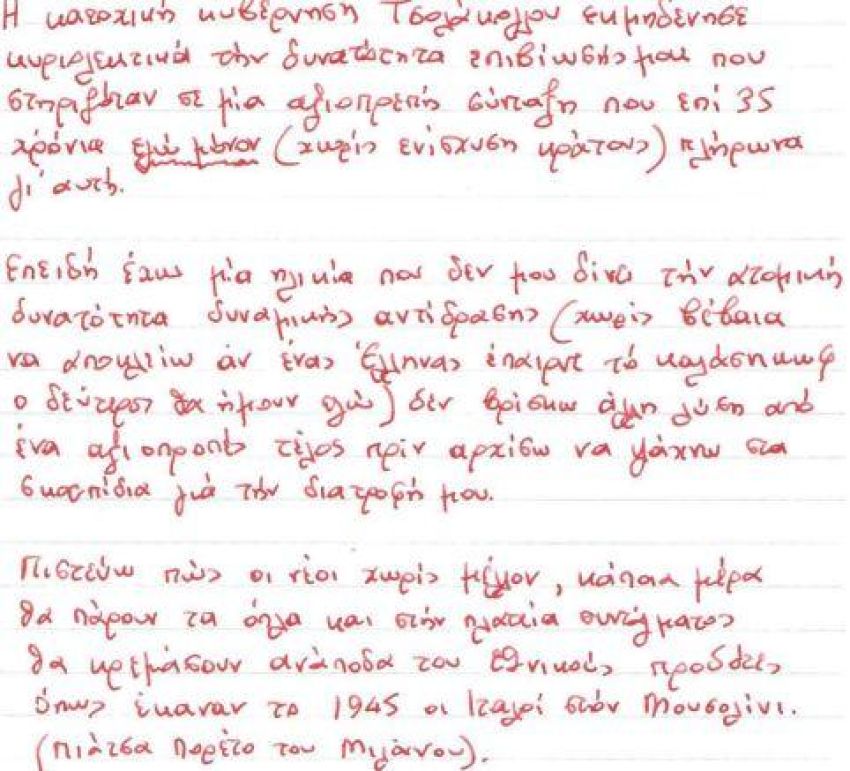 Η κατοχική κυβέρνηση Τσολάκογλου εκμηδένησε
κυριολεκτικά την δυνατότητα επιβίωσής μου που
στηριζόταν σε μία αξιοπρεπή σύνταξη που επί 35
χρόνια εγώ μόνον (χωρίς ενίσχυση κράτους) πλήρωνα
γι' αυτή.
Επειδή έχω μία ηλικία που δεν μου δίνει τήν ατομική
δυνατότητα δυναμικής αντίδρασης (χωρίς βέβαια
να αποκλείω άν ένας Έλληνας έπαιρνε τό καλάσνικωφ
ο δεύτερος θα ήμουν εγώ) δέν βρίσκω άλλη λύση από
ένα αξιοπρεπές τέλος πρίν αρχίσω να ψάχνω στα
σκουπίδια γιά τήν διατροφή μου.
Πιστεύω πώς οι νέοι χωρίς μέλλον, κάποια μέρα
θα πάρουν τα όπλα και στήν πλατεία συντάγματος
θα κρεμάσουν ανάποδα του εθνικούς προδότες
όπως έκαναν το 1945 οι Ιταλοί στόν Μουσολίνι.
(πιάτσα Πορέτο του Μιλάνου).